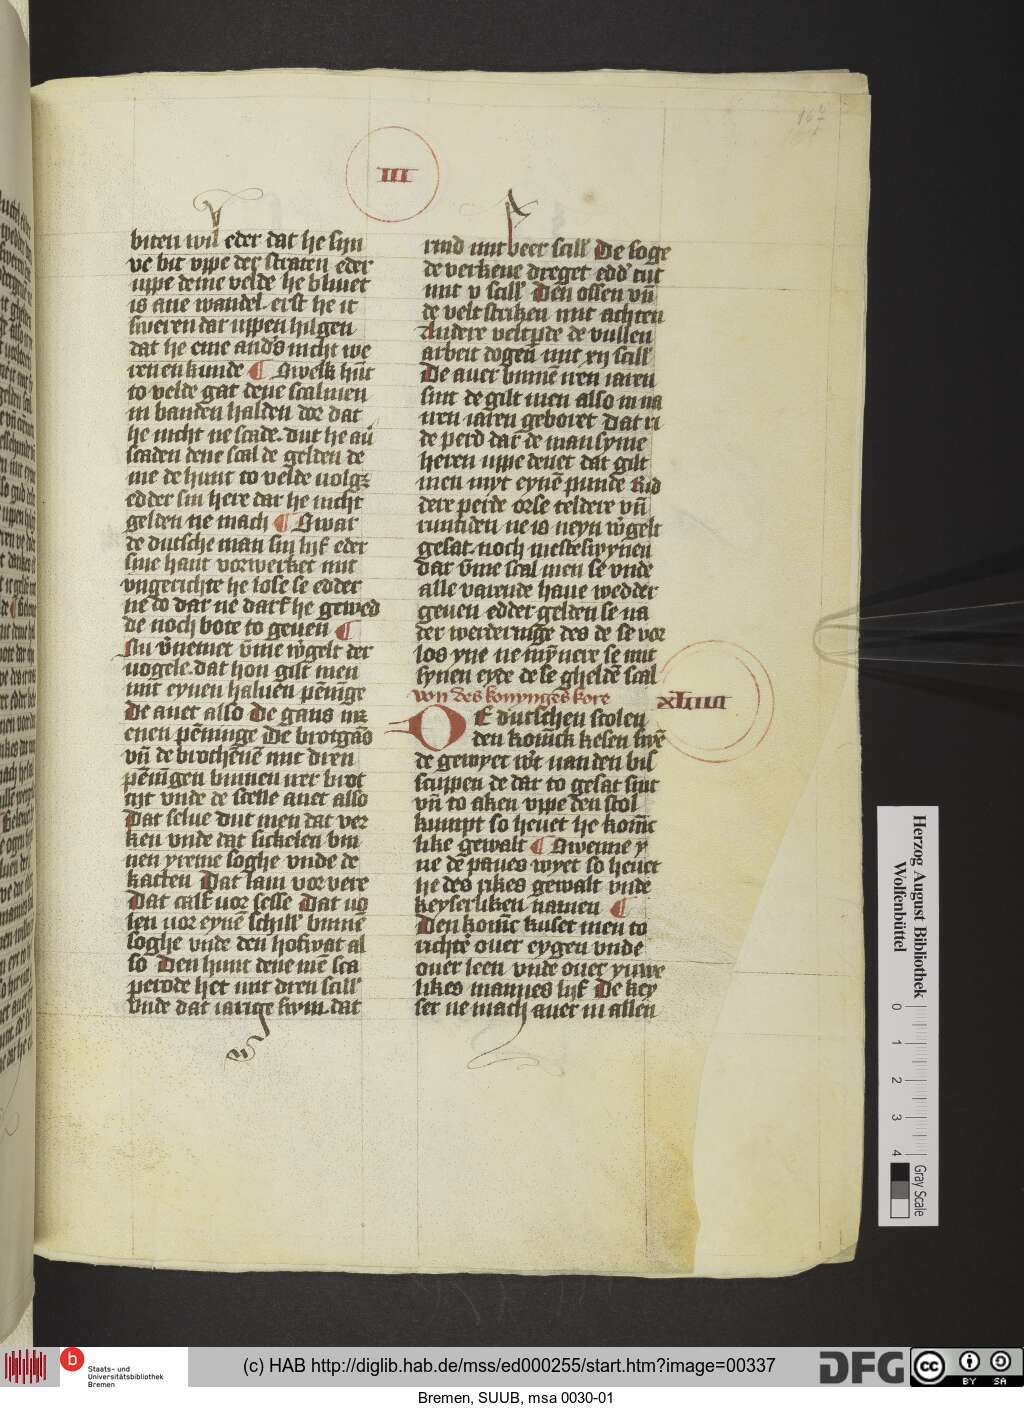 III
biten wil eder dat he sijn
ve bit vppe der straten eder
uppe deme velde he blivet
is ane wandel. erst he it
sweren dar uppen hilgen
dat he eme anders nicht we
ren en kunde ¶ Swelk hunt
to velde gat dene scal men
in banden halden dor dat
he nicht ne scade. dut he auer
scaden dene scal de gelden de
me de hunt to velde uolget
edder sin here dar he nicht
gelden ne mach ¶ Swar
de dutsche man sin lijf eder
sine hant vorwerket mit
vngerichte he lose se edder
ne do dar ne darf he gewed
de noch bote to geuen ¶
Nu vernemet vmme wergelt der
uogele. dat hon gilt men
mit eynen haluen penninge
De anet also De gans mit
enen penninge De brotgans
vnde de brothenne mit dren
penningen binnen irer brot
tijt vnde de scelle anet also
Dat selue dut men dat ver
ken vnde dat sickelen bin
nen yreme soghe vnde de
katten Dat lam vor vere
Dat calf uor sesse Dat uo
len uor eynen schill' binnen
soghe vnde den hofwat al
so Den hunt dene men sca
perode het mit dren scill'
vnde dat iarige swin. dat
rind mit veer scill' De soge
de verkene dreget edder tut
mit v scill' Den ossen vnde
de velt striken mit achten
Andere veltperde de vullen
arbeit dogen mit xij scill'
De auer binnen iren iaren
sint de gilt men also in na
iren iaren geboret Dat ri
de perd dar de man syme
heren uppe denet dat gilt
men myt eynem punde Rid
dere perde orse teldere vnde
runtiden ne is neyn wergelt
gesat. noch mesteswynen
Dar vmme scal men se vnde
alle varende haue wedder
geuen edder gelden se na
der werderunge des de se vor
los yne ne mynnere se mit
synen eyde de se ghelden scal
won des konynges kore
XLIIII
DE dutschen stolen
den konick kesen swen
de gewyet wert uan den bis
scuppen de dar to gesat sint
vnde to aken vppe den stol
kumpt so heuet he konick
like gewalt ¶ Swenne y
ne de paues wyet so heuet
he des rikes gewalt vnde
keyserliken namen ¶
Den konick kuset men to
richtere ouer eygen vnde
ouer leen vnde ouer yuwe
likes mannes lijf De key
ser ne mach auer in allen
Herzog August Bibliothek
Wolfenbüttel
0 1 2 3 4
Gray Scale
b
Staats- und
Universitätsbibliothek
Bremen
(c) HAB http://diglib.hab.de/mss/ed000255/start.htm?image=00337
DFG
cc BY SA
Bremen, SUUB, msa 0030-01